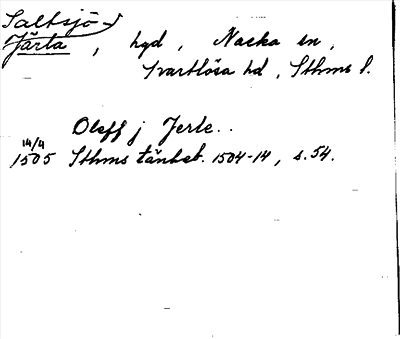 Saltsjö-
Järla, hgd, Nacka sn,
Svartlösa hd, Sthms l.
Oleff j Jerle..
14/4
1505 Sthms tänkeb. 1504-14, s. 54.